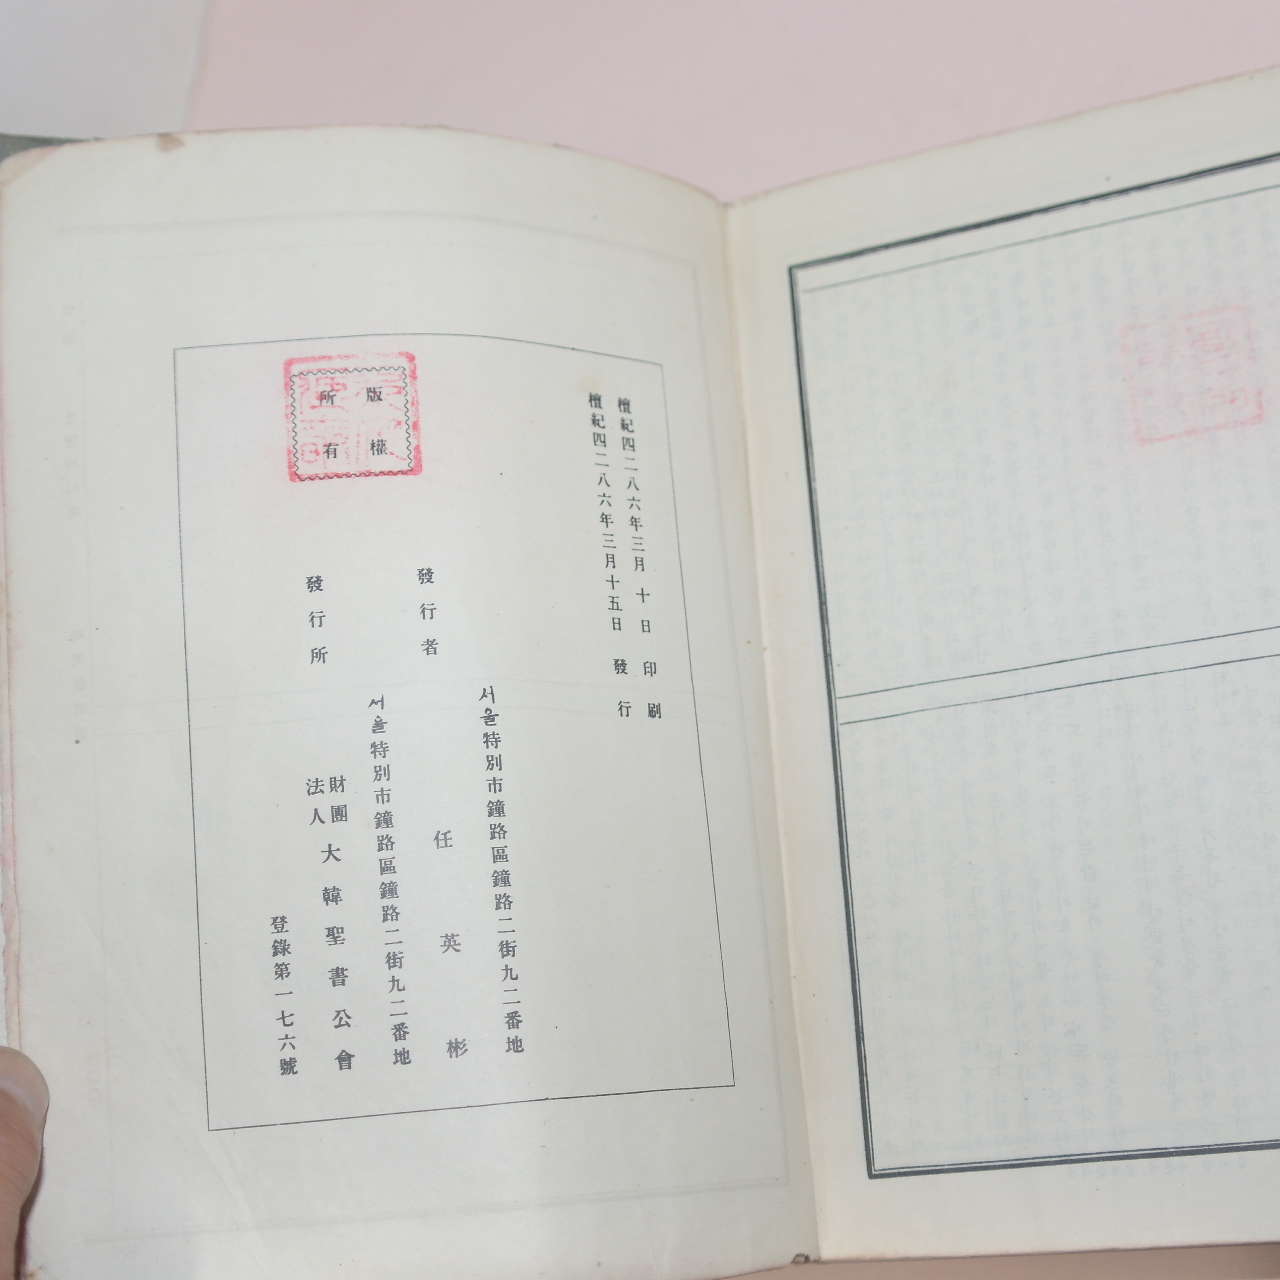 檀紀四二八六年三月十日 印刷
檀紀四二八六年三月十五日 發行
서울特別市鐘路區鐘路二街九二番地
發行者 任英彬
서울特別市鐘路區鐘路二街九二番地
發行所 財團法人 大韓聖書公會
登錄第一七六號
版權
所有